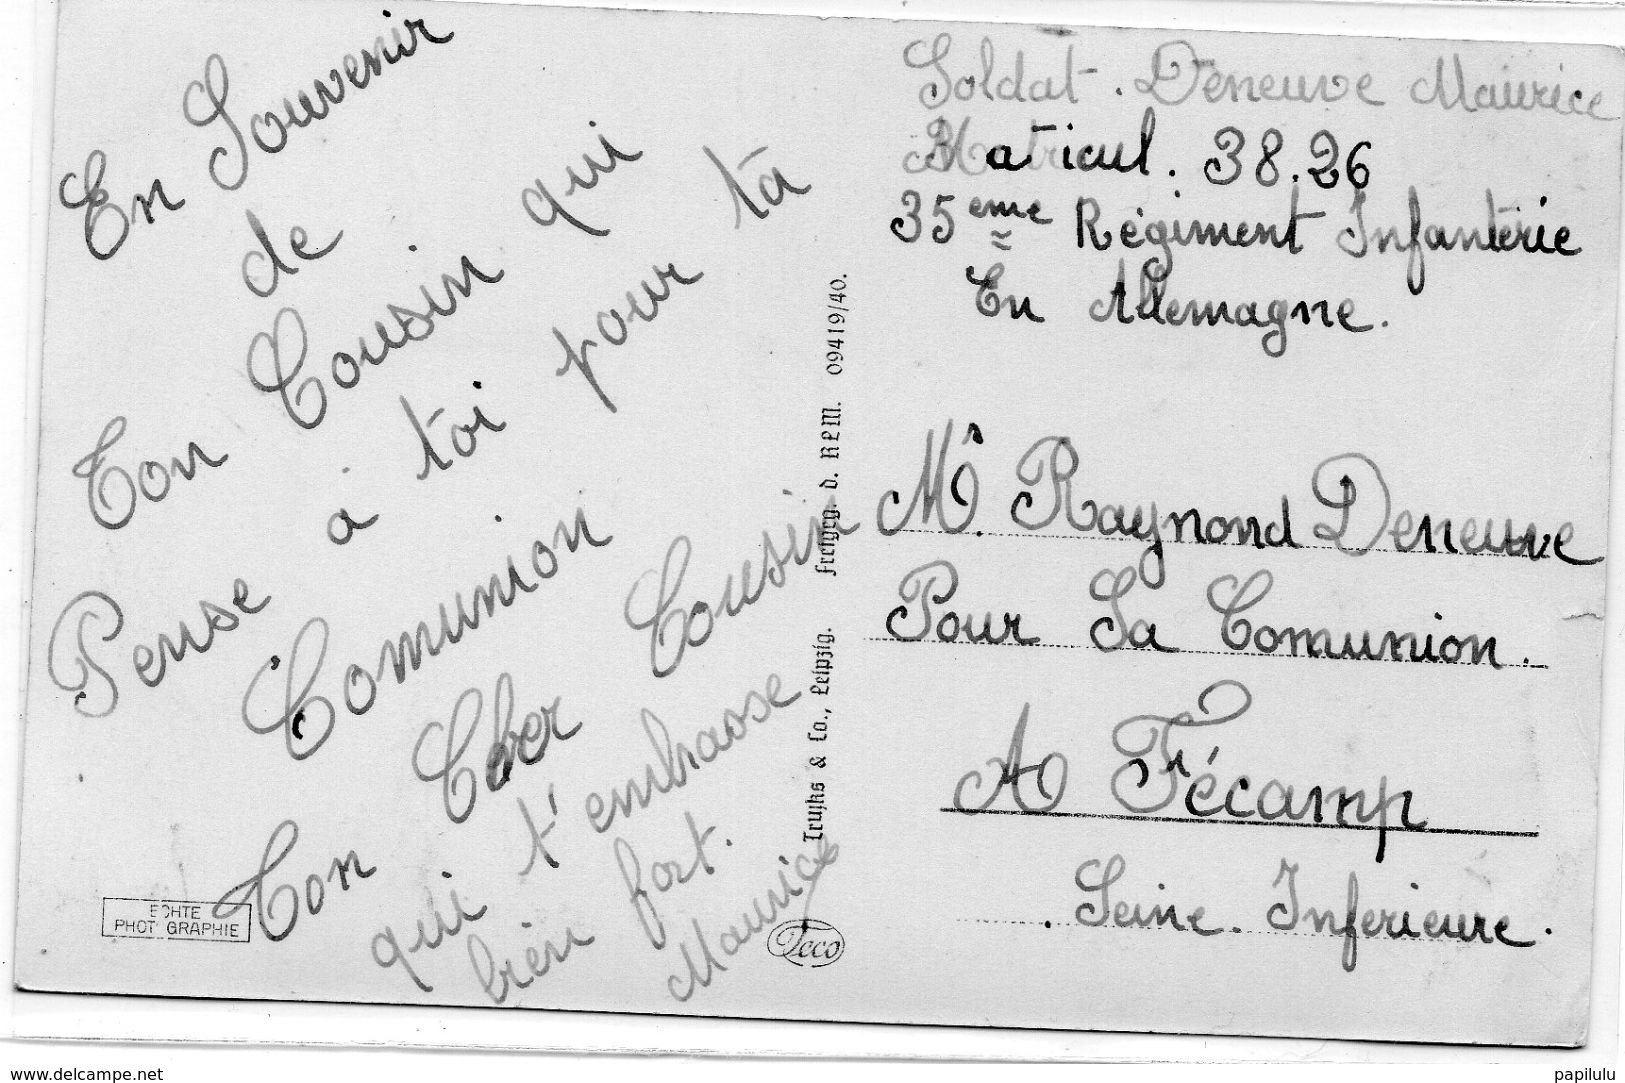 En Souvenir
de
Ton Cousin qui
Pense à toi pour ta
Comunion
Ton Cher Cousin
qui t'embrasse
bien fort.
Maurice
ECHTE
PHOTOGRAPHIE
Trujks & Co., Leipzig. Freigeg. d. RLM. 09419/40.
Teco
Soldat. Deneuve Maurice
Matricul. 38.26
35eme Régiment Infanterie
En Allemagne.
Mr. Raymond Deneuve
Pour Sa Comunion.
A Fécamp
Seine. Inferieure.
www.delcampe.net
papilulu